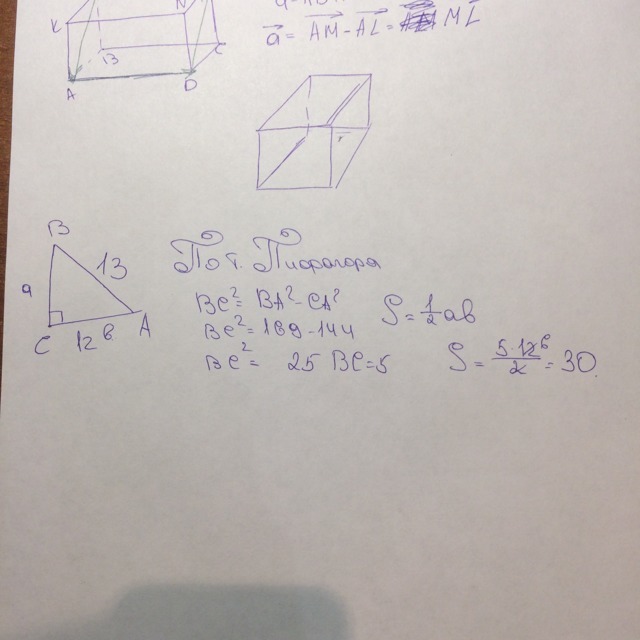 K N
B C
A D
a⃗ = AM⃗ - AL⃗ = ML⃗
B
a 13
C 12 b A
По т. Пифагора
BC² = BA² - CA²
BC² = 169 - 144
BC² = 25 BC = 5
S = 1/2 ab
S = 5·12⁶/2 = 30.